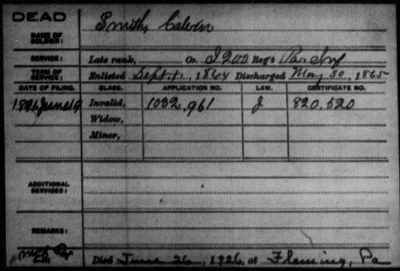 DEAD
NAME OF SOLDIER: Smith, Calvin
SERVICE: Late rank, Co. I, 200 Reg't Pa. Inf
TERM OF SERVICE: Enlisted Sept. 1, 1864 Discharged May 30, 1865
DATE OF FILING. CLASS. APPLICATION NO. LAW. CERTIFICATE NO.
June 19 Invalid, 1032,961 J 820,520
Widow,
Minor,
ADDITIONAL SERVICES:
REMARKS:
Died June 26, 1926, at Fleming, Pa